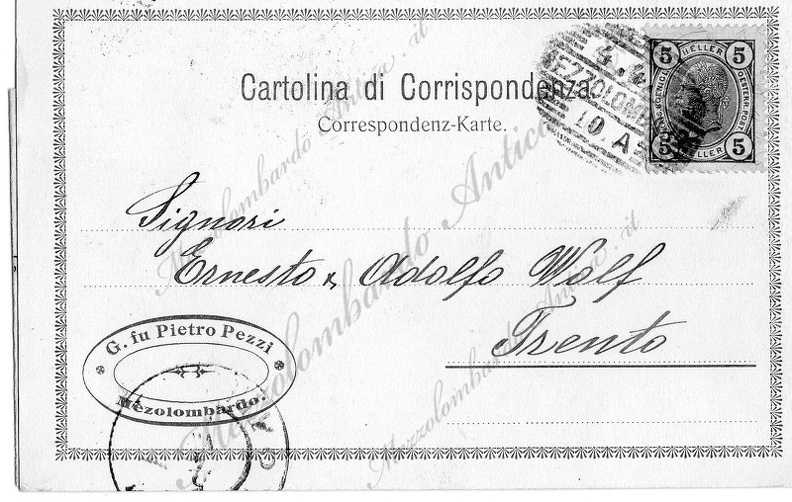 Cartolina di Corrispondenza.
Correspondenz-Karte.
5 HELLER 5
5 HELLER 5
10 A
Signori
Ernesto & Adolfo Wolf
Trento
G. fu Pietro Pezzi
Mezolombardo.
Mezzolombardo Antica.it
Mezzolombardo Antica.it
Mezzolombardo Antica.it